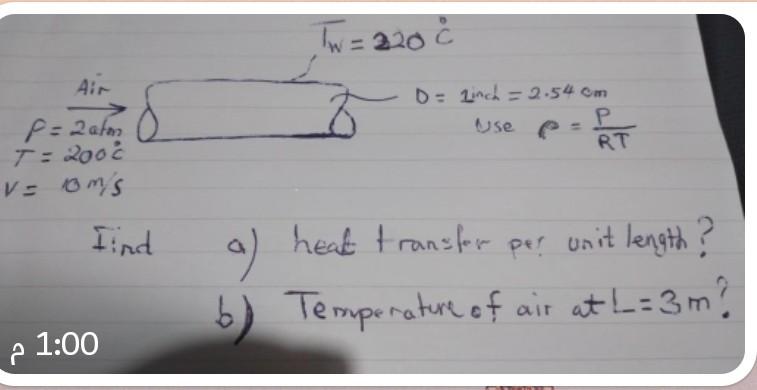 Tw = 220 °C
Air
P = 2 atm
T = 200 °C
V = 10 m/s
D = 1 inch = 2.54 cm
Use ρ = P/RT
Find a) heat transfer per unit length?
b) Temperature of air at L = 3 m?
1:00 م